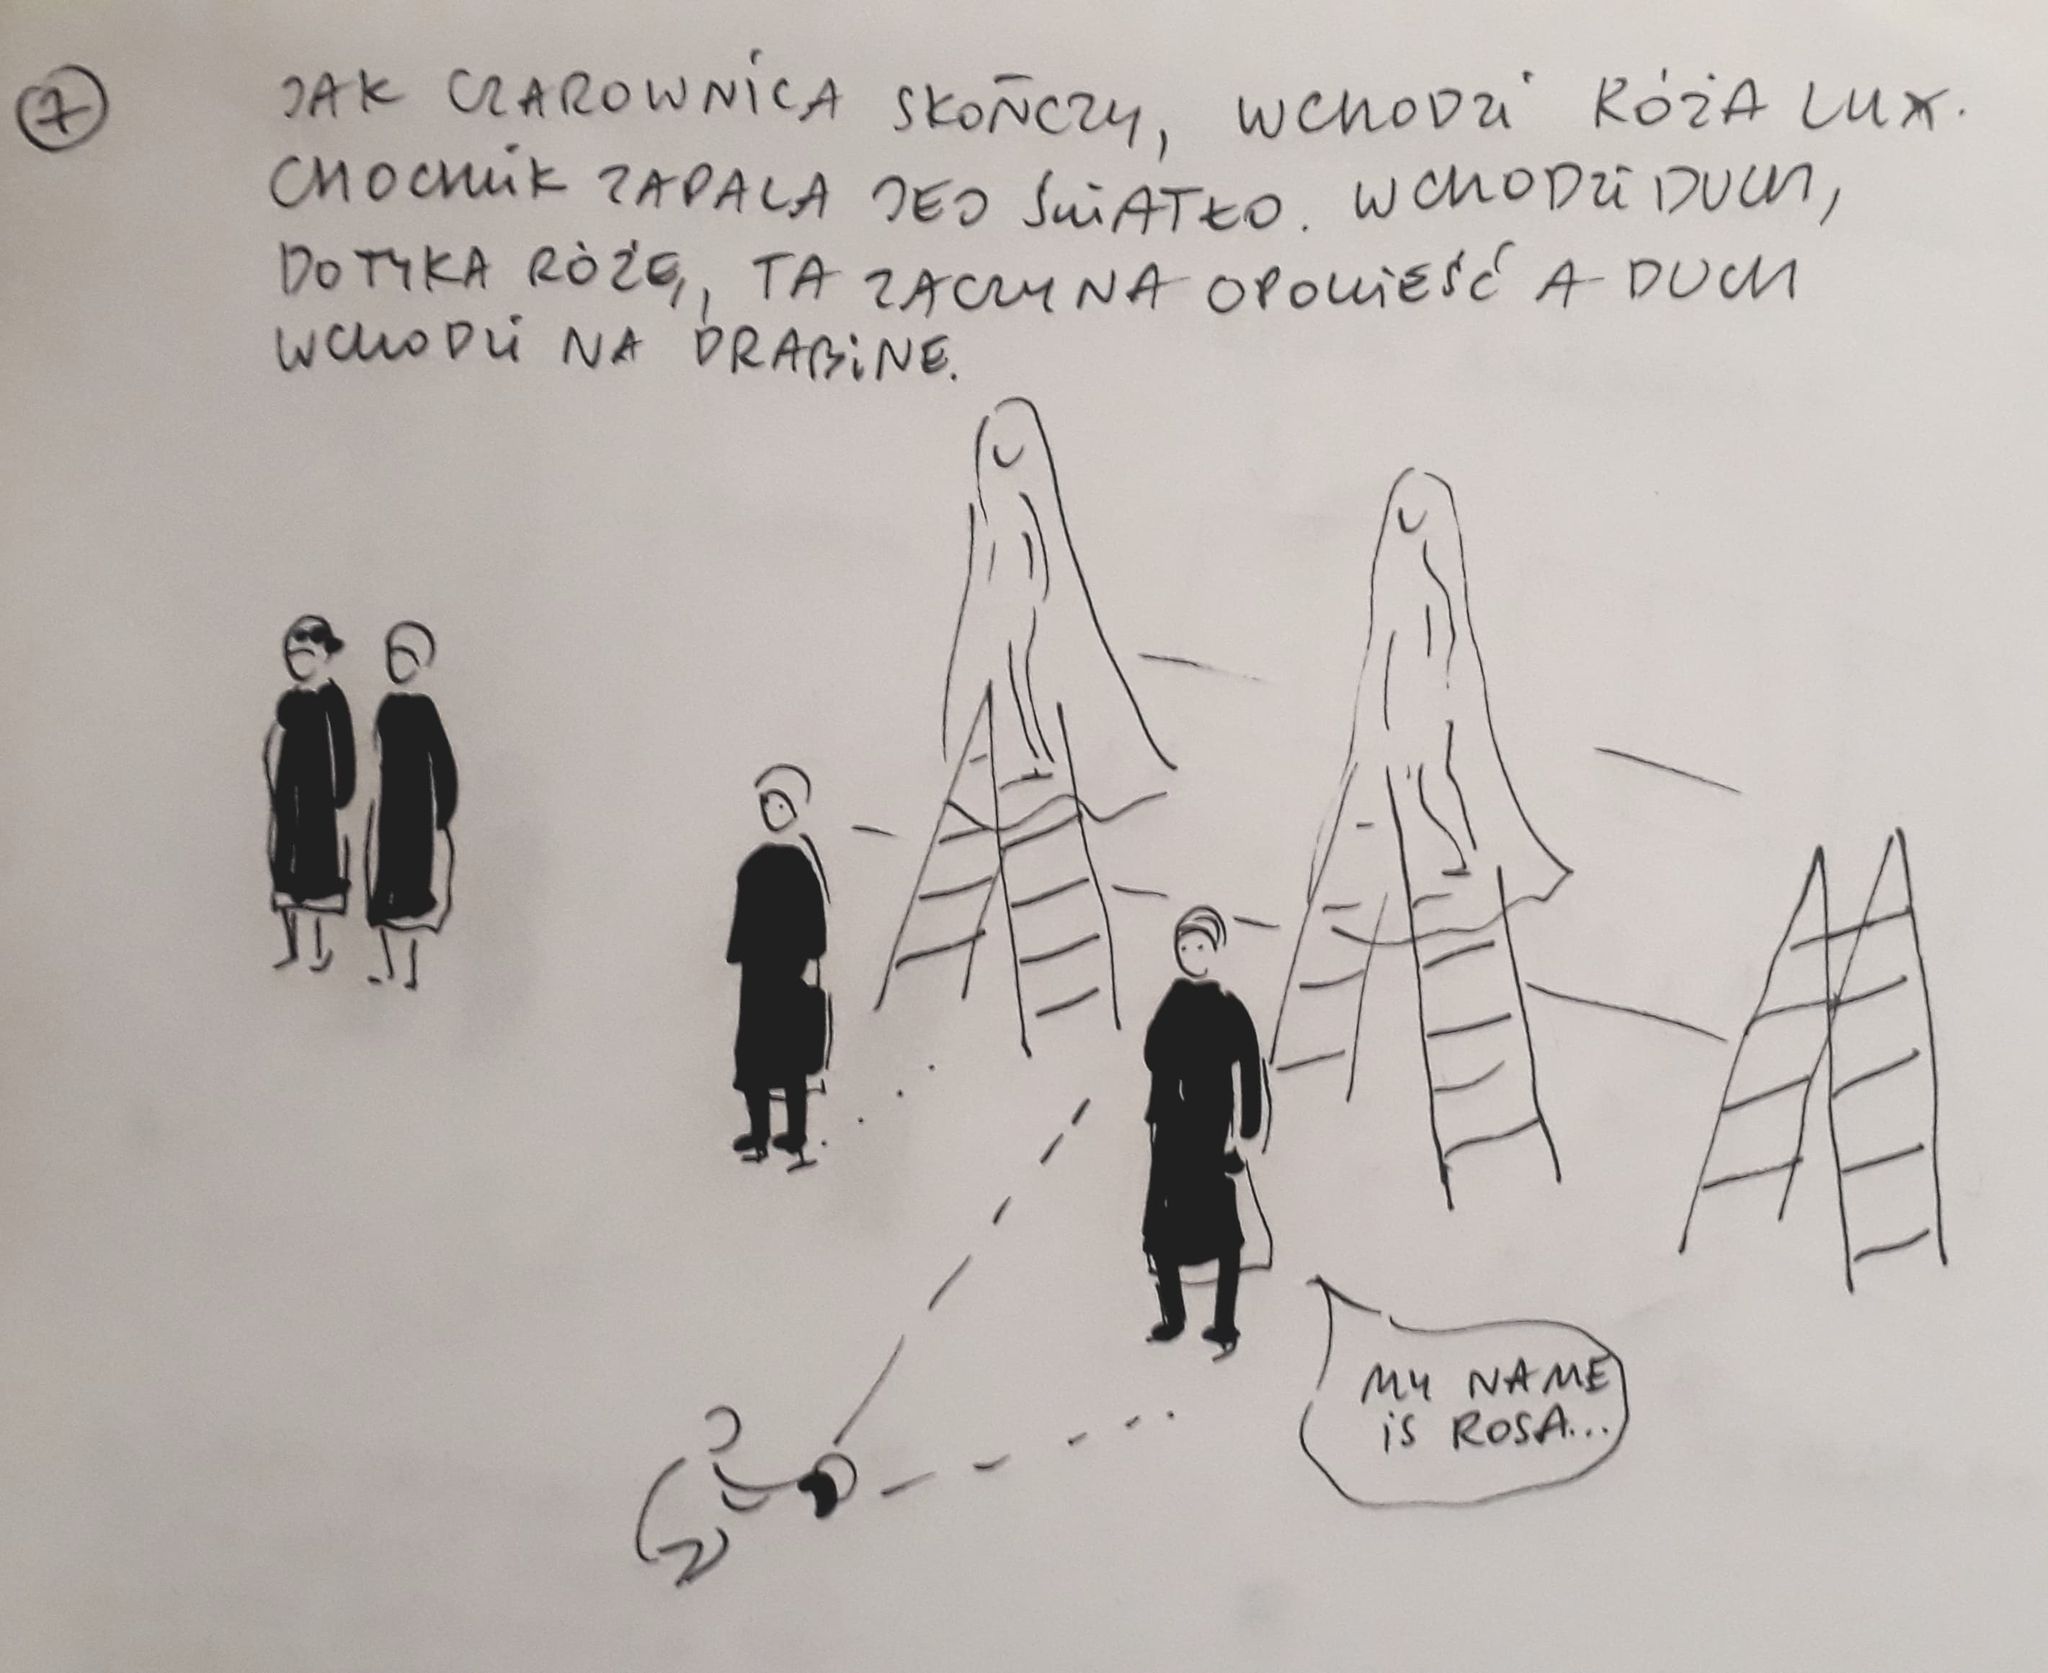 7
JAK CZAROWNICA SKOŃCZY, WCHODZI RÓŻA LUX.
CHOCHLIK ZAPALA JEJ ŚWIATŁO. WCHODZI DUCH,
DOTYKA RÓŻĘ, TA ZACZYNA OPOWIEŚĆ A DUCH
WCHODZI NA DRABINE.
MY NAME
IS ROSA...